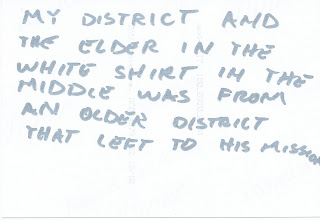 MY DISTRICT AND
THE ELDER IN THE
WHITE SHIRT IN THE
MIDDLE WAS FROM
AN OLDER DISTRICT
THAT LEFT TO HIS MISSION